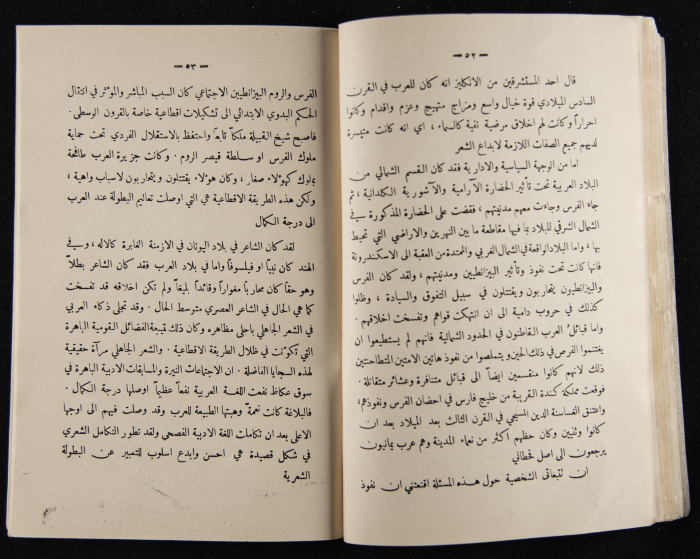 — ٥٢ —
قال احد المستشرقين من الانكليز انه كان للعرب في القرن
السادس الميلادي قوة خيال واسع ومزاج متهيج وعزم واقدام وكانوا
احراراً وكانت لهم اخلاق مرضية نقية كالسماء ، اي انه كانت متيسرة
لديهم جميع الصفات اللازمة لابداع الشعر
اما من الوجهة السياسية والادارية فقد كان القسم الشمالي من
البلاد العربية تحت تأثير الحضارة الآرامية والآشورية الكلدانية ، ثم
جاء الفرس وجاءت معهم مدنيتهم ، فقضت على الحضارة المذكورة في
الشمال الشرقي للبلاد بما فيها مقاطعة ما بين النهرين والاراضي التي تحيط
بها ، واما البلاد الواقعة في الشمال الغربي والممتدة من العقبة الى الاسكندرونة
فانها كانت تحت نفوذ وتأثير البيزانطيين ومدنيتهم ، ولقد كان الفرس
والبيزانطيون يتحاربون ويقتتلون في سبيل التفوق والسيادة ، وظلوا
كذلك في حروب دامية الى ان انتهكت قواهم وتفسخت اخلاقهم .
واما قبائل العرب القاطنون في الحدود الشمالية فانهم لم يستطيعوا ان
يغتنموا الفرس في ذلك الحين ويتملصوا من نفوذ هاتين الامتين المتطاحنتين
ذلك لانهم كانوا منقسمين ايضاً الى قبائل متنافرة وعشائر متقاتلة .
فوقعت مملكة كندة القريبة من خليج فارس في احضان الفرس ونفوذهم،
واعتنق الغساسنة الدين المسيحي في القرن الثالث بعد الميلاد بعد ان
كانوا وثنيين وكان حظهم اكثر من نعماء المدينة وهم عرب يمانيون
يرجعون الى اصل قحطاني
ان تتبعاتي الشخصية حول هذه المسئلة اقنعتني ان نفوذ
— ٥٣ —
الفرس والروم البيزانطيين الاجتماعي كان السبب المباشر والمؤثر في انتقال
الحكم البدوي الابتدائي الى تشكيلات اقطاعية خاصة بالقرون الوسطى .
فاصبح شيخ القبيلة ملكاً تابعاً واحتفظ بالاستقلال الفردي تحت حماية
ملوك الفرس او سلطة قيصر الروم . وكانت جزيرة العرب طافحة
بملوك كهؤلاء صغار ، وكان هؤلاء يقتتلون ويتحاربون لاسباب واهية ،
ولكن هذه الطريقة الاقطاعية هي التي اوصلت تعاليم البطولة عند العرب
الى درجة الكمال
لقد كان الشاعر في بلاد اليونان في الازمنة الغابرة كالاله ، وفي
الهند كان نبياً او فيلسوفاً واما في بلاد العرب فقد كان الشاعر بطلاً
وهو حقاً كان محارباً مغواراً وقائداً بليغاً ولم تكن اخلاقه قد تفسخت
كما هي الحال في الشاعر العصري متوسط الحال . وقد تجلى ذكاء العربي
في الشعر الجاهلي باجلى مظاهره وكان ذلك نتيجة الفضائل القومية الباهرة
التي تكونت في ظلال الطريقة الاقطاعية . والشعر الجاهلي مرآة حقيقية
لهذه السجايا الفاضلة . ان الاجتماعات النيرة والمسابقات الادبية الباهرة في
سوق عكاظ نفعت اللغة العربية نفعاً عظيماً اوصلها درجة الكمال .
فالبلاغة كانت نعمة وهبتها الطبيعة للعرب وقد وصلت فيهم الى اوجها
الاعلى بعد ان تكاملت اللغة الادبية الفصحى ولقد تطور التكامل الشعري
في شكل قصيدة هي احسن وابدع اسلوب للتعبير عن البطولة
الشعرية